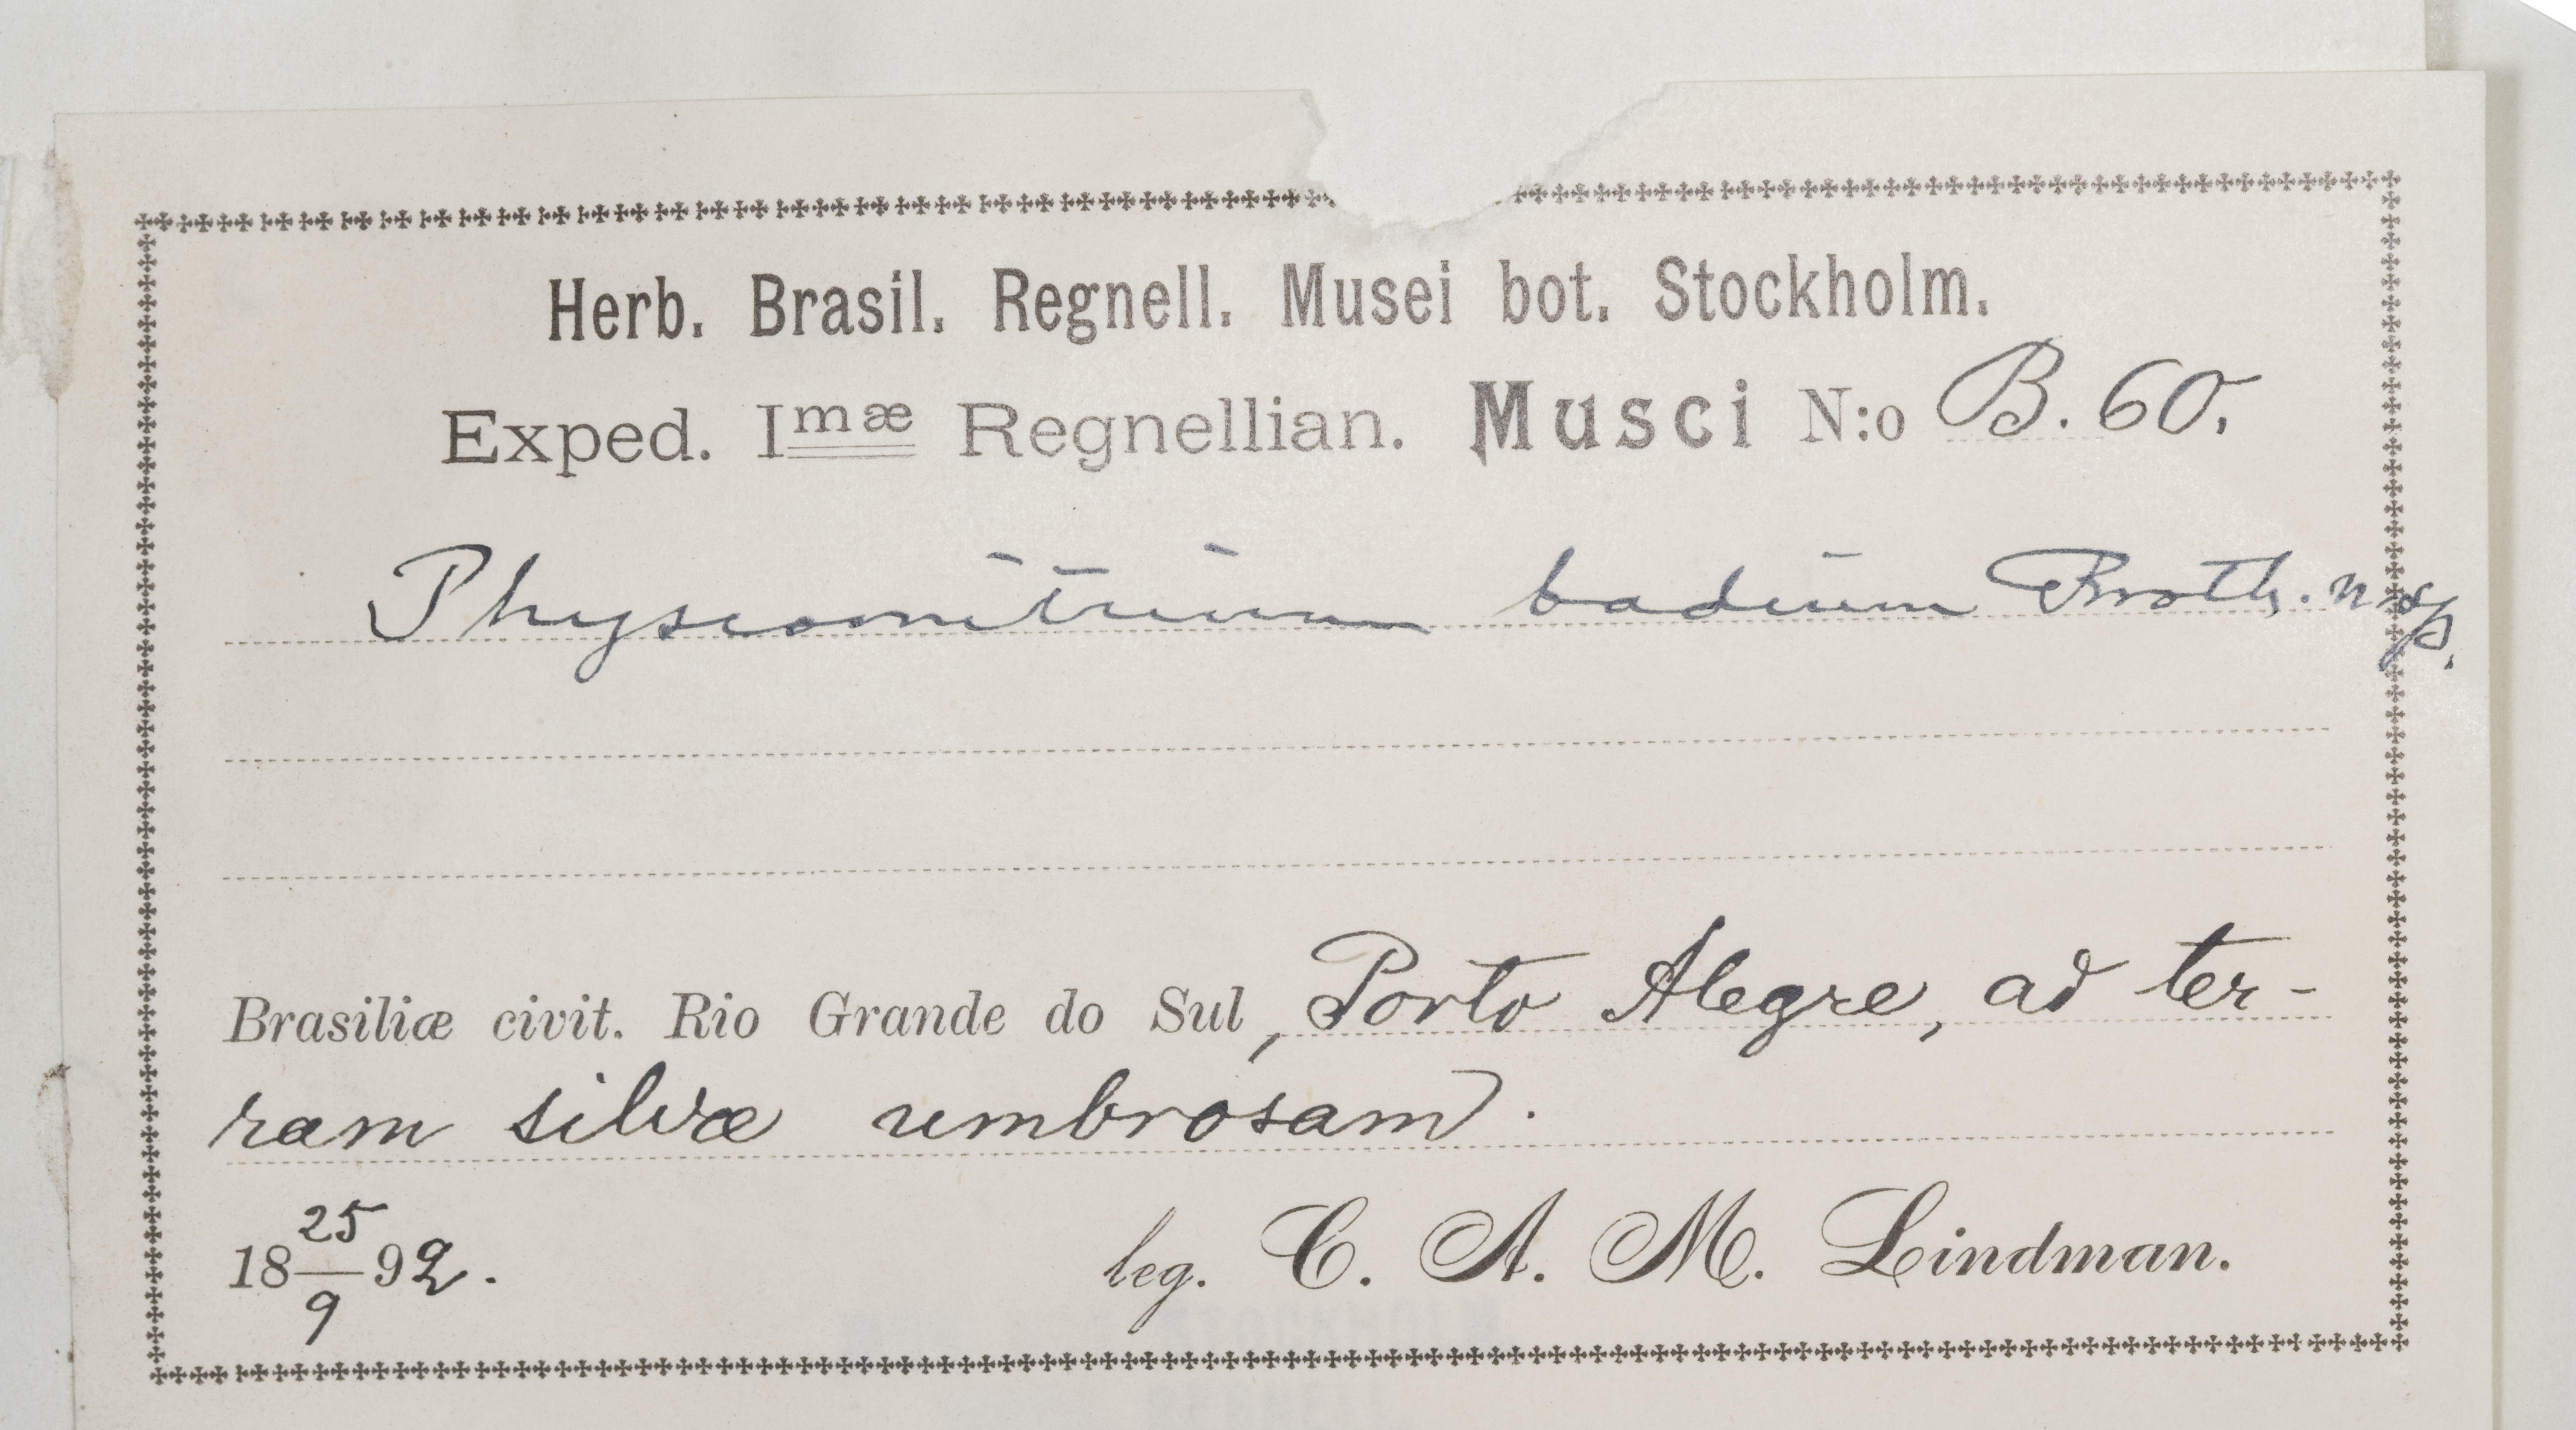 Herb. Brasil. Regnell. Musei bot. Stockholm.
Exped. Imæ Regnellian. Musci N:o B. 60.
Physcomitrium badium Broth. n. sp.
Brasiliæ civit. Rio Grande do Sul, Porto Alegre, ad ter-
ram silvæ umbrosam.
18 25/9 92. leg. C. A. M. Lindman.